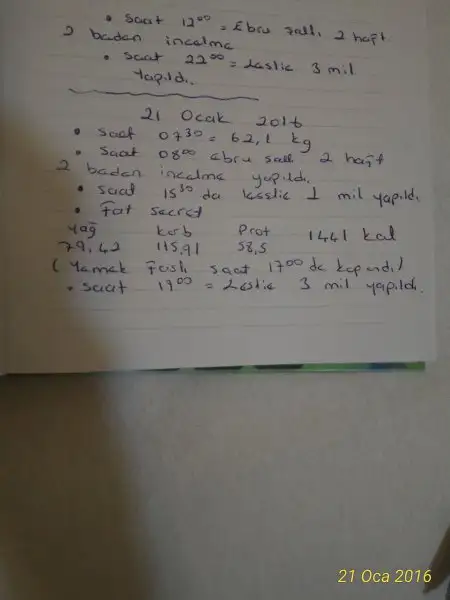 • Saat 12⁰⁰ = Ebru Şallı 2 haft
2 beden incelme
• Saat 22⁰⁰ = Leslie 3 mil
Yapıldı.
21 Ocak 2016
• Saat 07³⁰ = 62,1 kg
• Saat 08⁰⁰ Ebru Şallı 2 haft
2 beden incelme yapıldı.
• Saat 15³⁰ da Lesslie 1 mil yapıldı
• Fat Secret
Yağ karb Prot 1441 kal
79,42 115,91 58,5
(Yemek faslı saat 17⁰⁰ de kapandı)
• Saat 19⁰⁰ = Leslie 3 mil yapıldı.
21 Oca 2016